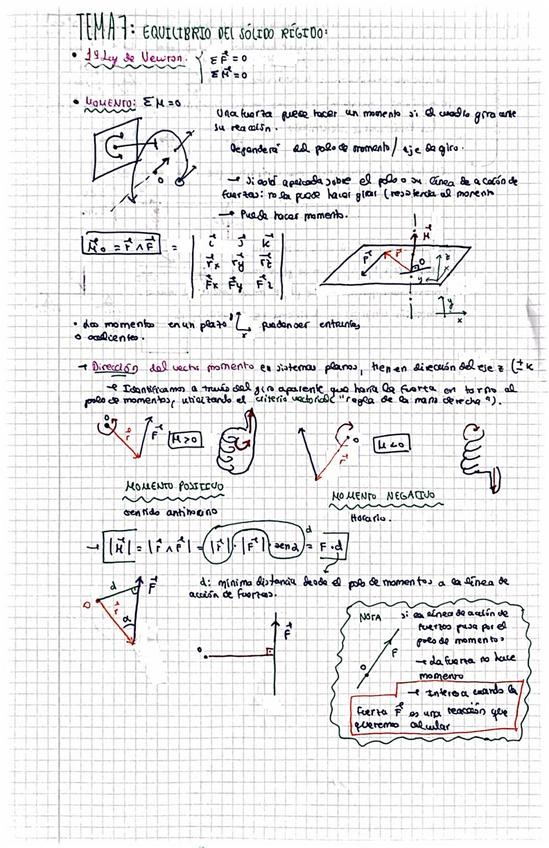 TEMA 7: EQUILIBRIO DEL SÓLIDO RÍGIDO:
• 1ª Ley de Newton. { ΣF⃗ = 0
ΣM⃗ = 0
• MOMENTO: ΣM = 0
Una fuerza puede hacer un momento si el cuadro gira ante
su reacción.
Dependerá del polo de momento / eje la giro.
→ Si está aplicada sobre el polo o su línea de acción de
fuerzas: no la puede hacer girar (resistencia al momento
→ Puede hacer momento.
M⃗o = r⃗ ∧ F⃗ = | i⃗ j⃗ k⃗
rx ry rz
Fx Fy Fz |
M⃗
F⃗ r⃗ O
z
y x
y
x
• Los momentos en un plano pueden ser entrantes
o salientes.
→ Dirección del vector momento en sistemas planos, tienen dirección del eje z (± k
→ Identificamos a través del giro aparente que haría la fuerza en torno al
polo de momentos, utilizando el criterio vectorial "regla de la mano derecha").
O r⃗ F⃗ M>0
O r⃗ M<0
MOMENTO POSITIVO
sentido antihorario
MOMENTO NEGATIVO
Horario.
→ |M⃗| = |r⃗ ∧ F⃗| = |r⃗| · |F⃗| · sen α = F · d
d
d: mínima distancia desde el polo de momentos a la línea de
acción de fuerzas.
O d F⃗ r⃗ α
O F⃗
NOTA Si la línea de acción de
fuerzas pasa por el
polo de momentos
O F → La fuerza no hace
momento
→ Interesa cuando la
fuerza F⃗ es una reacción que
queremos calcular